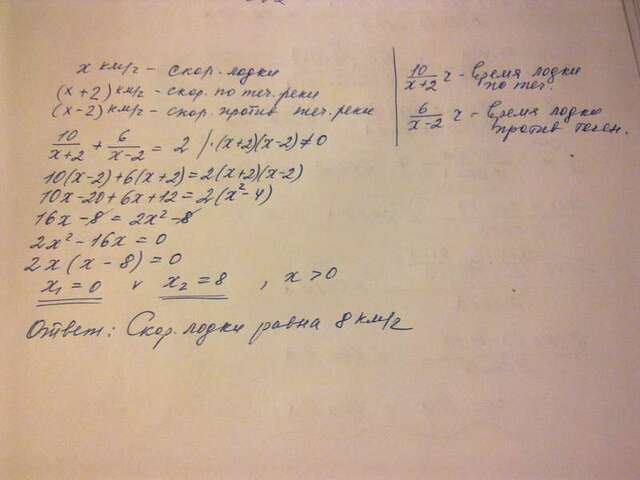 x км/ч – скор. лодки
(x+2) км/ч – скор. по теч. реки
(x-2) км/ч – скор. против теч. реки
10/(x+2) ч - время лодки по теч.
6/(x-2) ч - время лодки против течен.
10/(x+2) + 6/(x-2) = 2 /·(x+2)(x-2)≠0
10(x-2)+6(x+2)=2(x+2)(x-2)
10x-20+6x+12=2(x²-4)
16x-8=2x²-8
2x²-16x=0
2x(x-8)=0
x₁=0 v x₂=8 , x>0
Ответ: Скор. лодки равна 8 км/ч